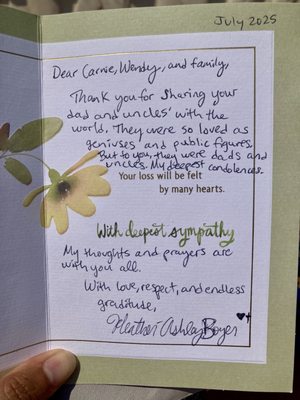 July 2025
Dear Carnie, Wendy, and family,
Thank you for sharing your
dad and uncles' with the
world. They were so loved as
geniuses and public figures.
But to you, they were dads and
uncles. My deepest condolences.
Your loss will be felt
by many hearts.
With deepest sympathy
My thoughts and prayers are
with you all.
With love, respect, and endless
gratitude,
Heather Ashley Boyer